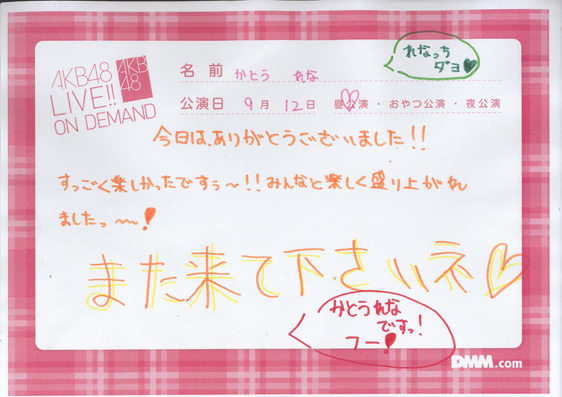 AKB48
LIVE!!
ON DEMAND
AKB
48
名前 かとう れな
れなっち
ダヨ
公演日 9月12日 昼公演・おやつ公演・夜公演
今日は、ありがとうございました!!
すっごく楽しかったですぅ〜!!みんなと楽しく盛り上がれ
ましたっ〜!
また来て下さいネ
かとうれな
ですっ!
フー!
DMM.com